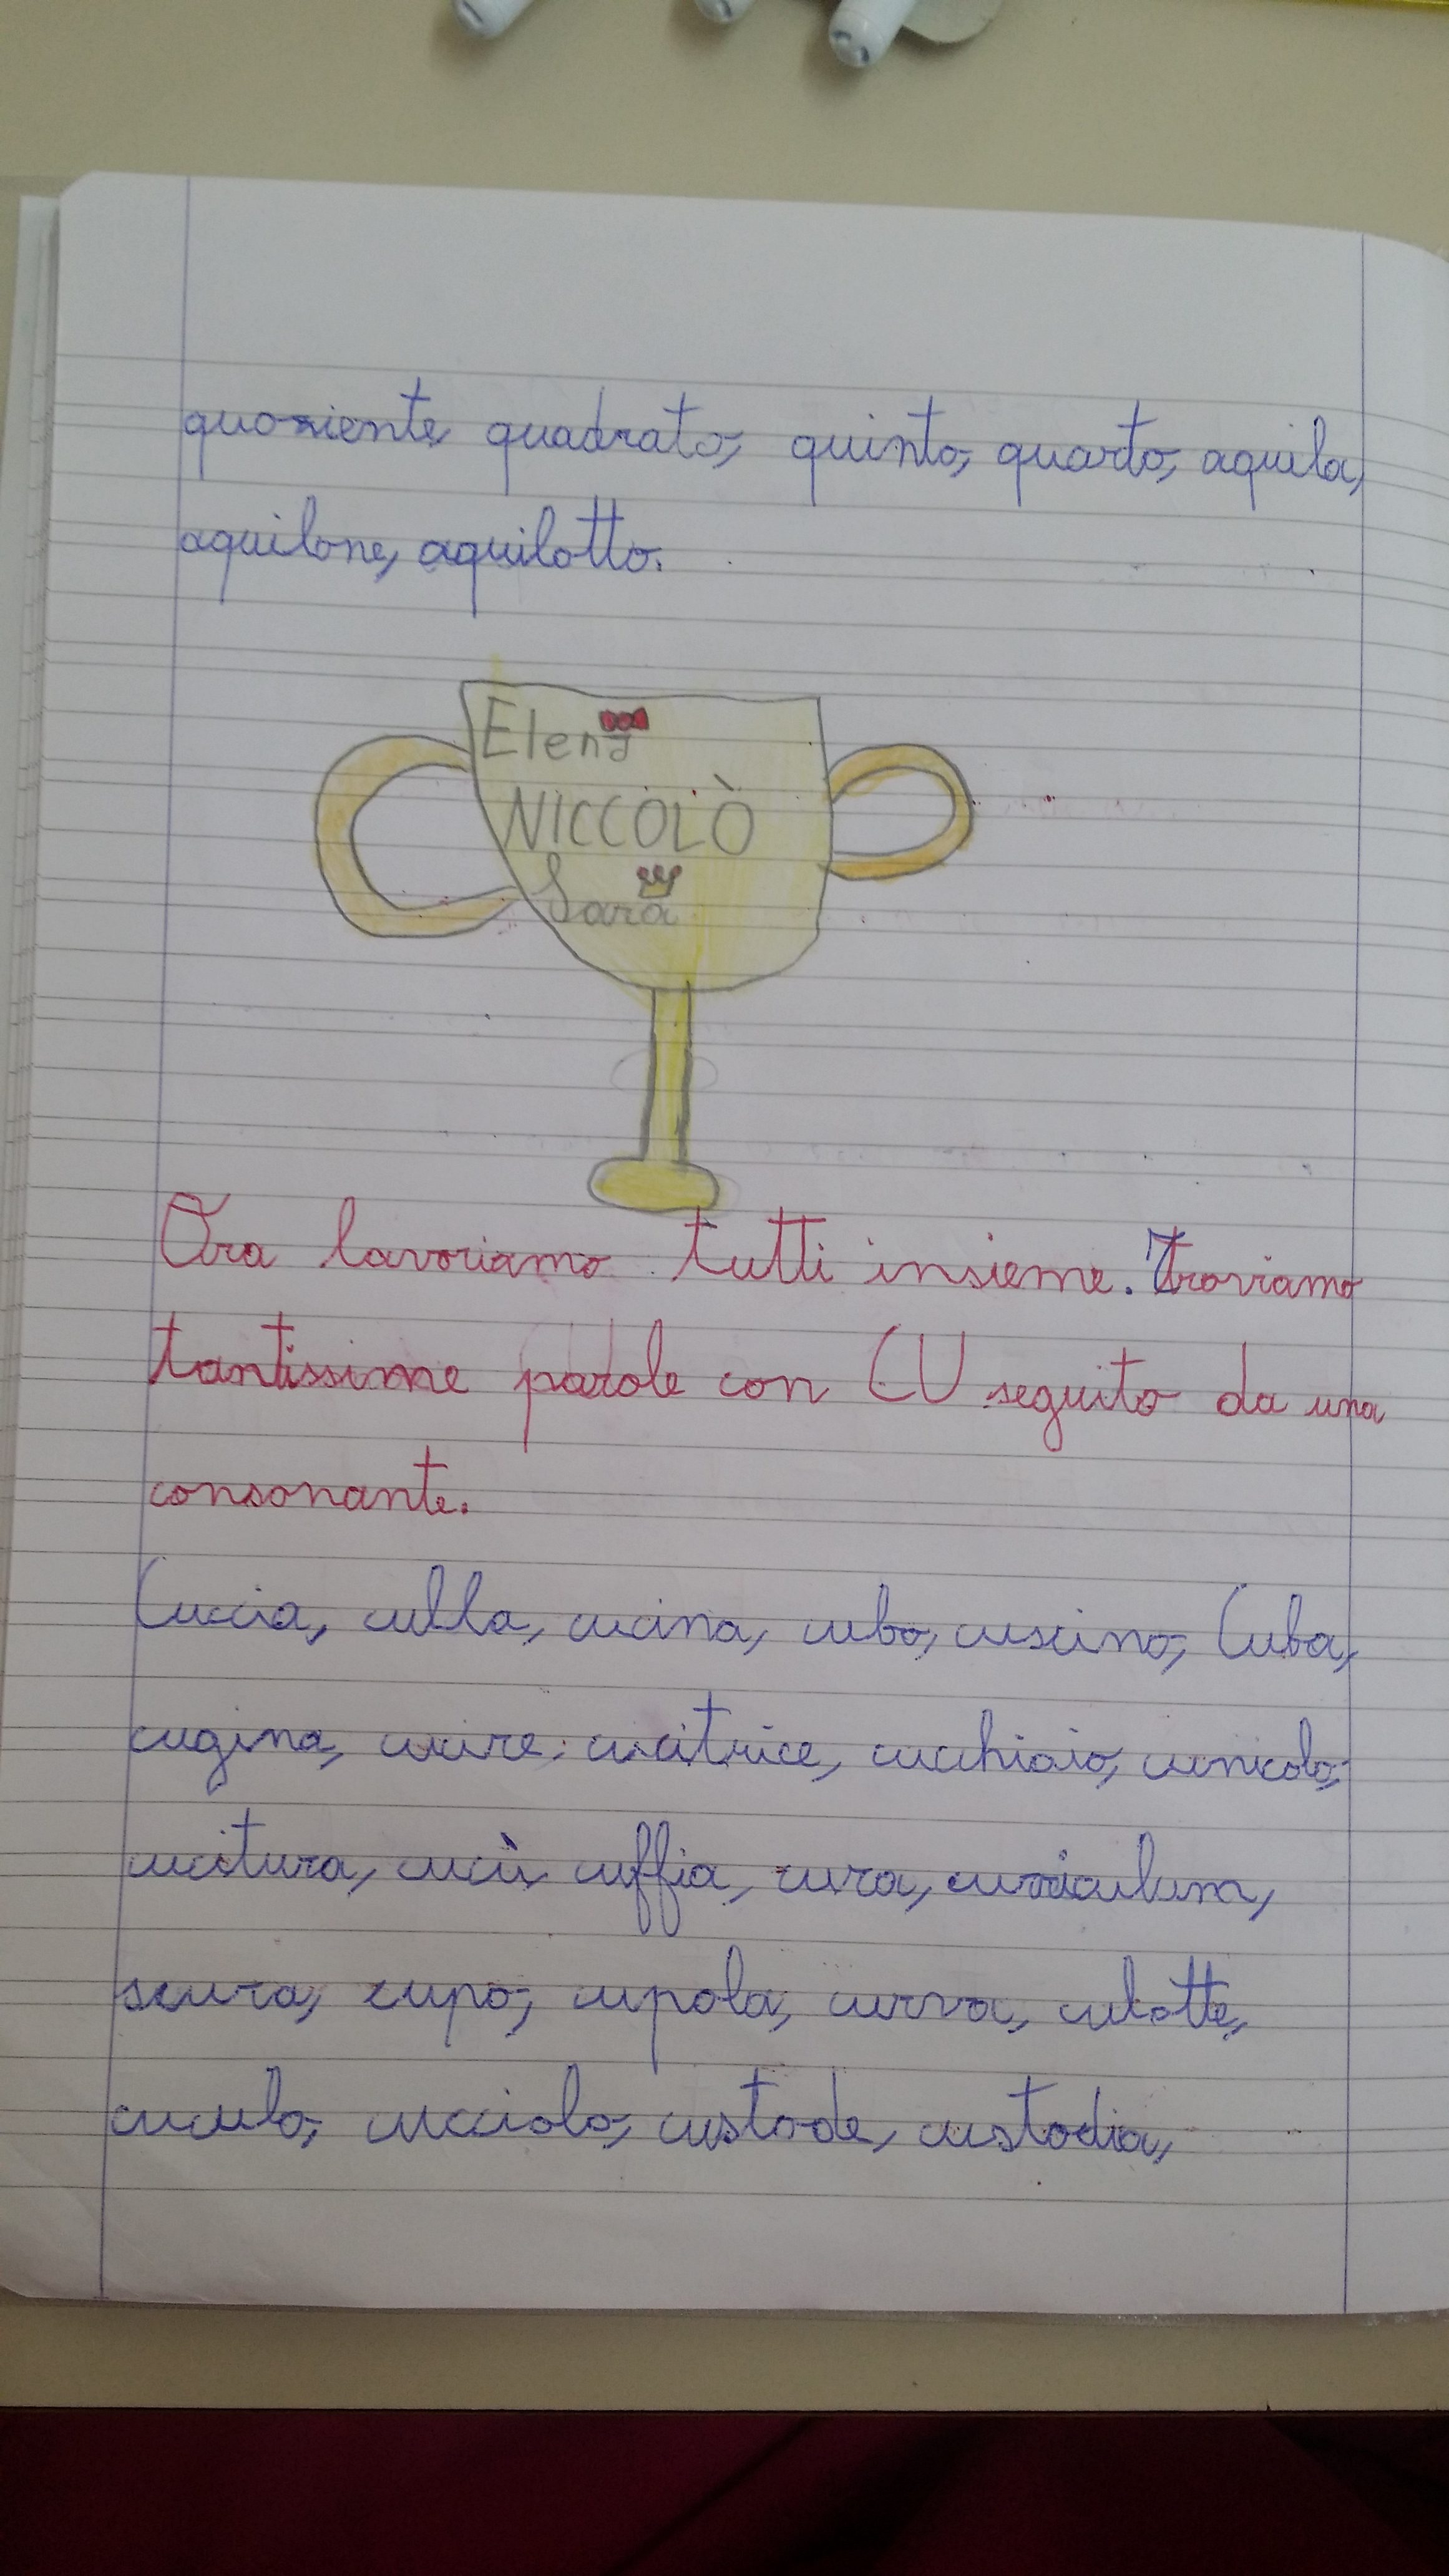 quoziente, quadrato, quinto, quarto, aquila,
aquilone, aquilotto.
Elena
NICCOLÒ
Sara
Ora lavoriamo tutti insieme. Troviamo
tantissime parole con CU seguito da una
consonante.
Cuccia, culla, cucina, cubo, cuscino, Cuba,
cugina, cucire, cucitrice, cucchiaio, cunicolo,
cucitura, cucù, cuffia, cura, curriculum,
scura, cupo, cupola, curva, culotte,
cuculo, cucciolo, custode, custodia,